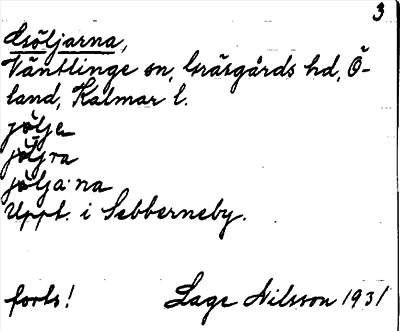 3
Isöljarna,
Väntlinge sn, Gräsgårds hd, Ö-
land, Kalmar l.
jölje
jöljra
jölja·na
Uppt. i Sebberneby.
forts! Lage Nilsson 1931